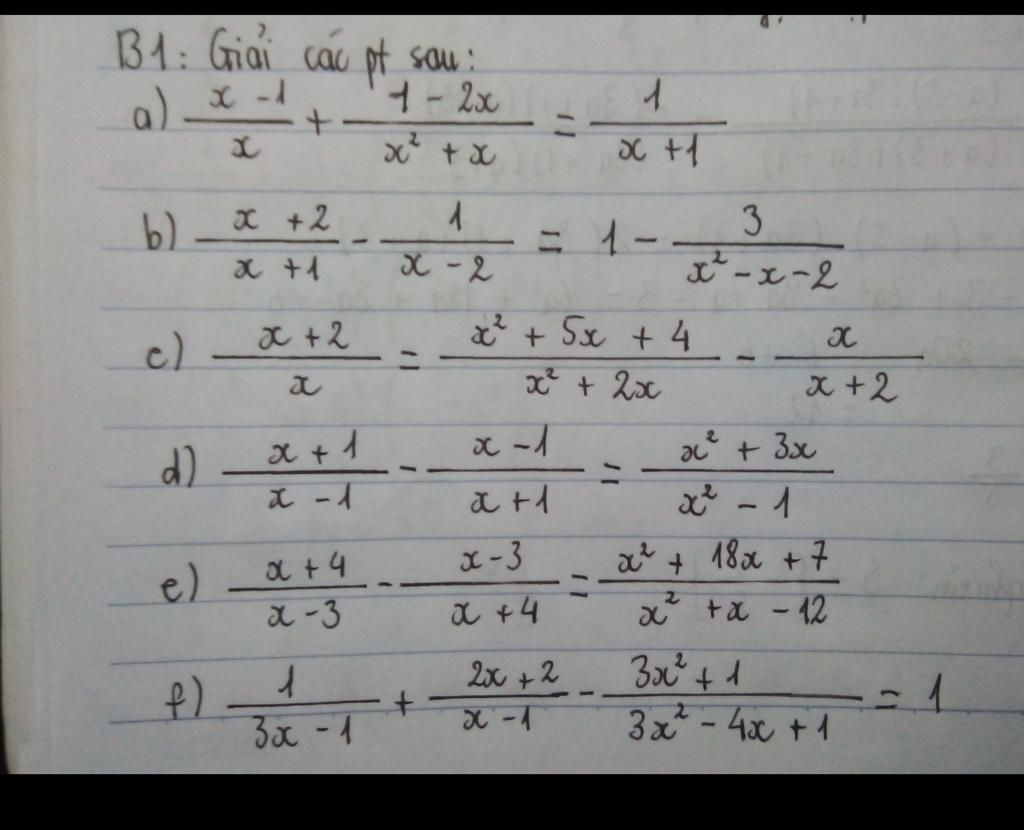 B1: Giải các pt sau:
a) \frac{x-1}{x} + \frac{1-2x}{x^2+x} = \frac{1}{x+1}
b) \frac{x+2}{x+1} - \frac{1}{x-2} = 1 - \frac{3}{x^2-x-2}
c) \frac{x+2}{x} = \frac{x^2+5x+4}{x^2+2x} - \frac{x}{x+2}
d) \frac{x+1}{x-1} - \frac{x-1}{x+1} = \frac{x^2+3x}{x^2-1}
e) \frac{x+4}{x-3} - \frac{x-3}{x+4} = \frac{x^2+18x+7}{x^2+x-12}
f) \frac{1}{3x-1} + \frac{2x+2}{x-1} - \frac{3x^2+1}{3x^2-4x+1} = 1